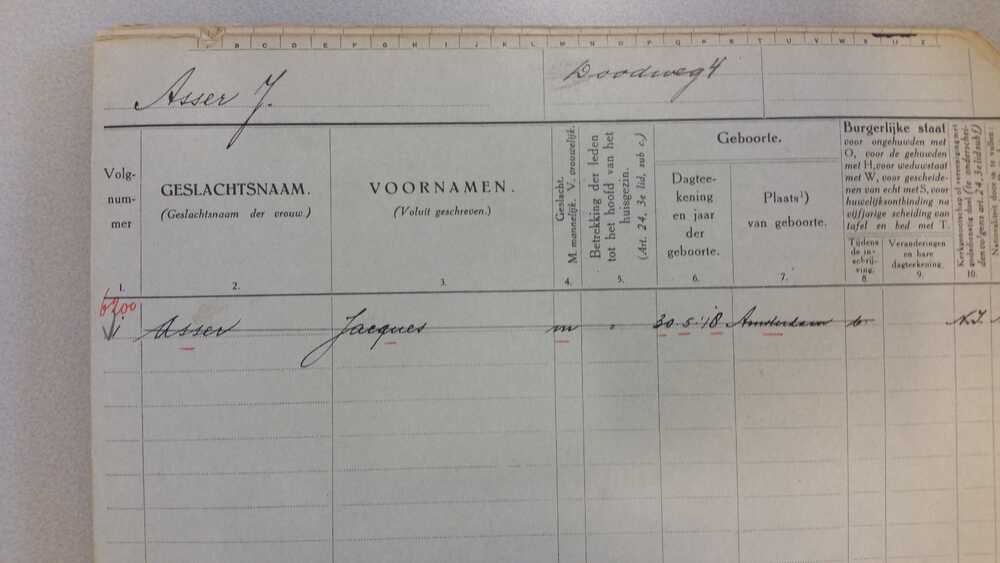 B C D E F G H I J K L M N O P Q R T U V W S U Z
Asser J.
Doodweg 4
Volg-
num-
mer
1.
GESLACHTSNAAM.
(Geslachtsnaam der vrouw.)
2.
VOORNAMEN.
(Voluit geschreven.)
3.
Geslacht.
M. mannelijk. V. vrouwelijk.
4.
Betrekking der leden
tot het hoofd van het
huisgezin.
(Art. 24, 3e lid, sub c.)
5.
Geboorte.
Dagtee-
kening
en jaar
der
geboorte.
6.
Plaats¹)
van geboorte.
7.
Burgerlijke staat
voor ongehuwden met
O, voor de gehuwden
met H, voor weduwstaat
met W, voor gescheide-
nen van echt met S, voor
huwelijksontbinding na
vijfjarige scheiding van
tafel en bed met T.
Tijdens
de in-
schrij-
ving.
8.
Veranderingen
en hare
dagteekening.
9.
Kerkgenootschap of vereeniging met
godsdienstig doel (te onderschei-
den volgens art. 24, 3e lid sub f.)
10.
6200
1 Asser Jacques m 30.5.'18 Amsterdam o N.I.